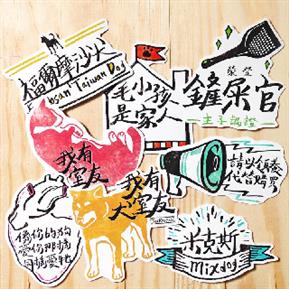 福爾摩沙犬
osan Taiwan Dog
毛小孩
是家人
鏟屎官
主子認證
我有
室友
我有
犬室友
請以領養
代替購買
愛你那樣
同樣愛牠
米克斯
Mixdog